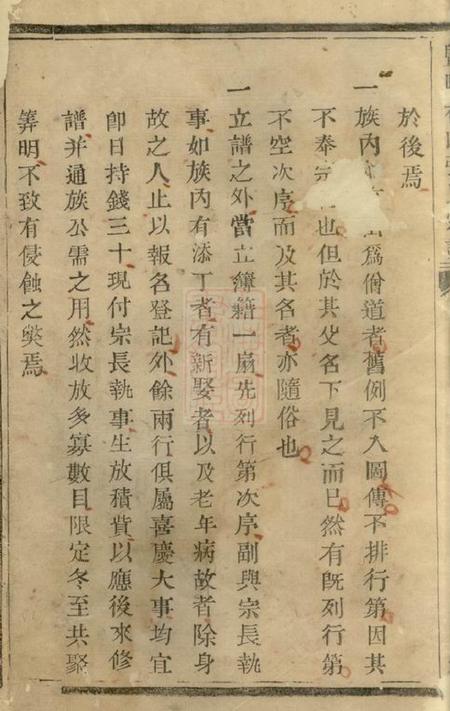 於後焉
一族內 爲僧道者舊例不入圖傳不排行第因其
不奉宗 也但於其父名下見之而已然有旣列行第
不空次序而及其名者亦隨俗也
一立譜之外當立簿籍一扇先列行第次序副與宗長執
事如族內有添丁者有新娶者以及老年病故者除身
故之人止以報名登記外餘兩行俱屬喜慶大事均宜
卽日持錢三十現付宗長執事生放積貲以應後來修
譜并通族公需之用然收放多寡數目限定冬至共聚
筭明不致有侵蝕之獘焉